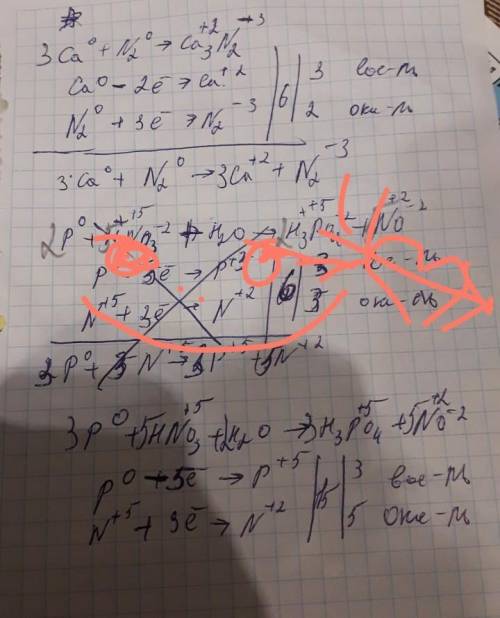 3Ca⁰ + N₂⁰ → Ca₃⁺²N₂⁻³
Ca⁰ - 2ē → Ca⁺² | 6 | 3 вос-ль
N₂⁰ + 3ē → N₂⁻³ | 2 оки-ль
3Ca⁰ + N₂⁰ → 3Ca⁺² + N₂⁻³
2P⁰ + H₂O → 2H₃PO₄ + NO
P 5ē → P
N⁺⁵ + 3ē N⁺² 5 оки-ль
3P⁰ + 5N⁺⁵ → 3P⁺⁵ + 5N⁺²
3P⁰ + 5HN⁺⁵O₃ + 2H₂O → 3H₃P⁺⁵O₄ + 5N⁺²O⁻²
P⁰ - 5ē → P⁺⁵ | 15 | 3 вос-ль
N⁺⁵ + 3ē → N⁺² | 5 оки-ль